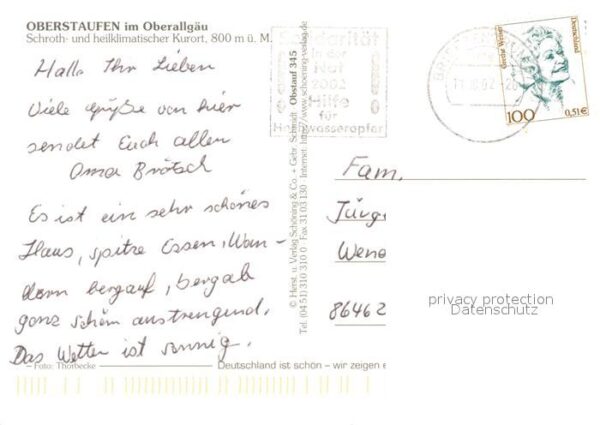 OBERSTAUFEN im Oberallgäu
Schroth- und heilklimatischer Kurort, 800 m ü. M.
Hallo Ihr Lieben
Viele Grüße von hier
sendet Euch allen
Oma Brötsch
Es ist ein sehr schönes
Haus, spitze Essen, Wan-
dern bergauf, bergab
ganz schön anstrengend.
Das Wetter ist sonnig.
Foto: Thorbecke
Deutschland ist schön – wir zeigen e
© Herst. u. Verlag Schöning & Co. + Gebr. Schmidt Obstauf 345
Tel. (04 51) 310 310 0 Fax 31 03 130 Internet: http://www.schoening-verlag.de
Solidarität
in der
Not
2002
Hilfe
für
Hochwasseropfer
Grethe Weiser
Deutschland
100
0,51€
Fam.
Jürge
Wene
86462
privacy protection
Datenschutz